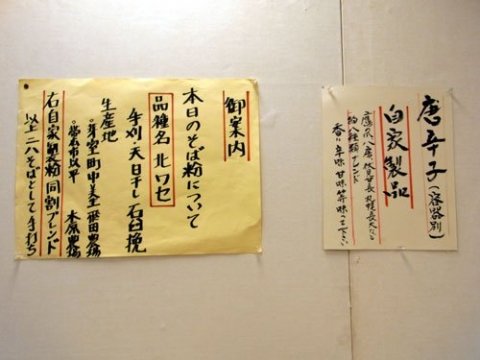 御案内
本日のそば粉について
品種名 北ワセ
手刈・天日干し 石臼挽
生産地
・芽室町中美生
・帯広市以平
右自家製粉 同割ブレンド
以上 二八そばとして手打ち
唐辛子(容器別)
自家製品
約八種類ブレンド
香り 辛味 甘味等